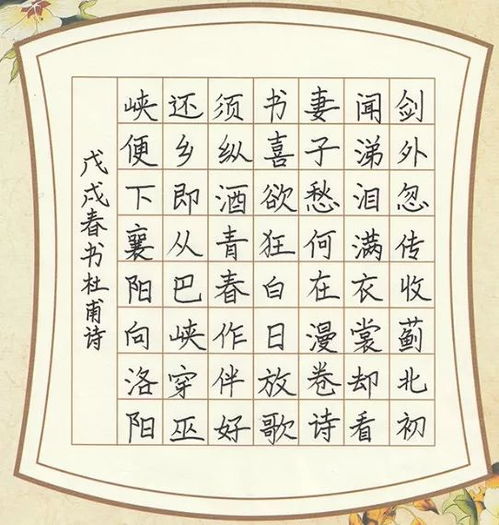 剑外忽传收蓟北初
闻涕泪满衣裳却看
妻子愁何在漫卷诗
书喜欲狂白日放歌
须纵酒青春作伴好
还乡即从巴峡穿巫
峡便下襄阳向洛阳
戊戌春书杜甫诗